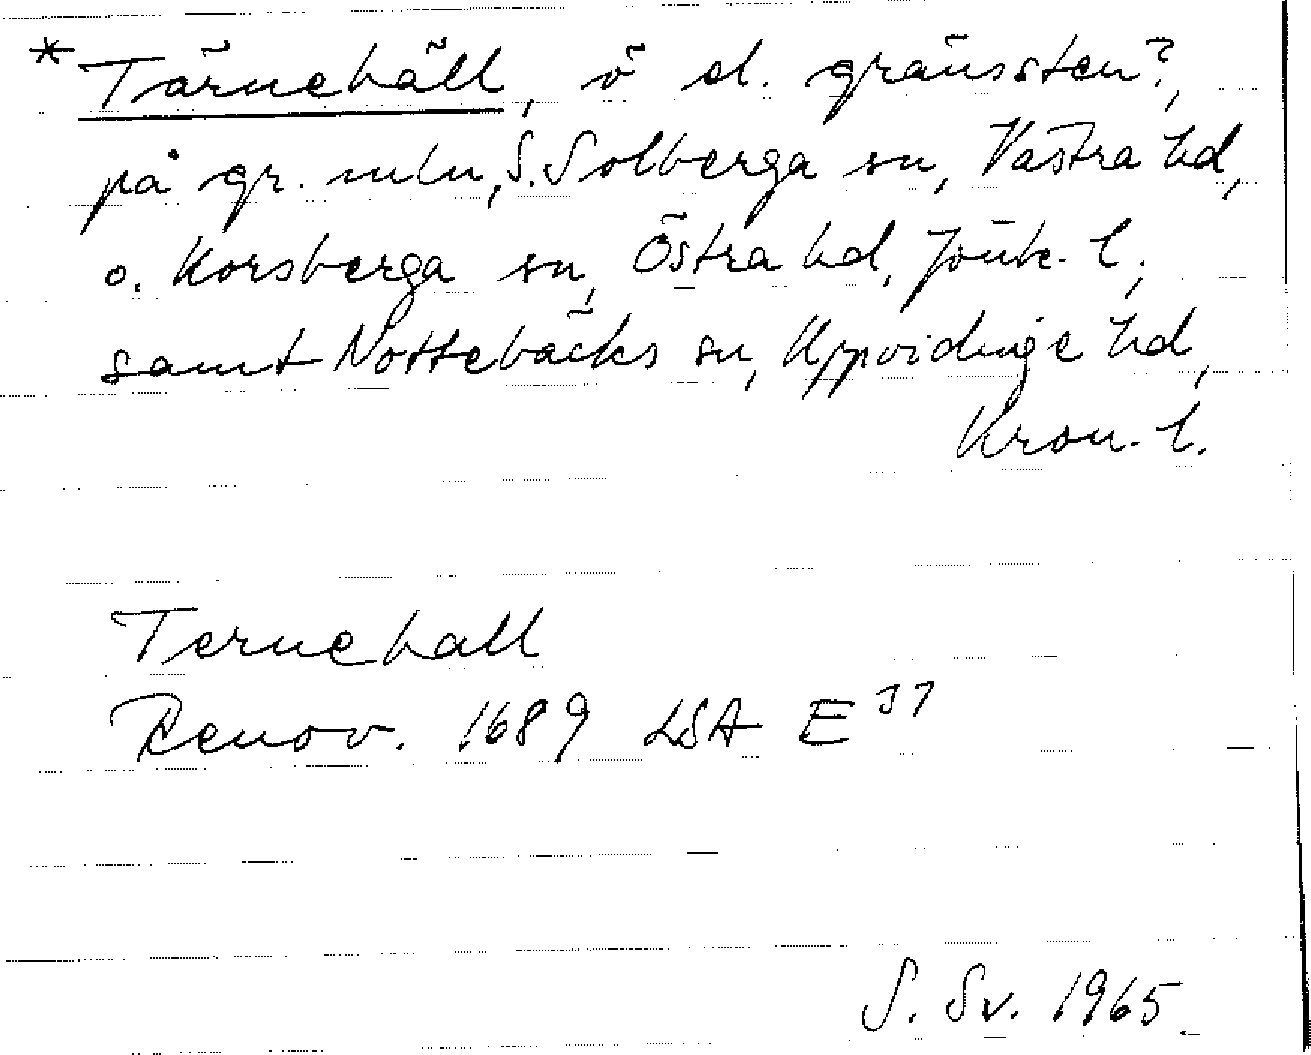 * Tärnehäll, ö el. gränssten?,
på gr. mln, S. Solberga sn, Västra hd,
o. Korsberga sn, Östra hd, Jönk. l.,
samt Nottebäcks sn, Uppvidinge hd,
Kron. l.
Ternehall
Renov. 1689 LSA E 37
S. Sv. 1965